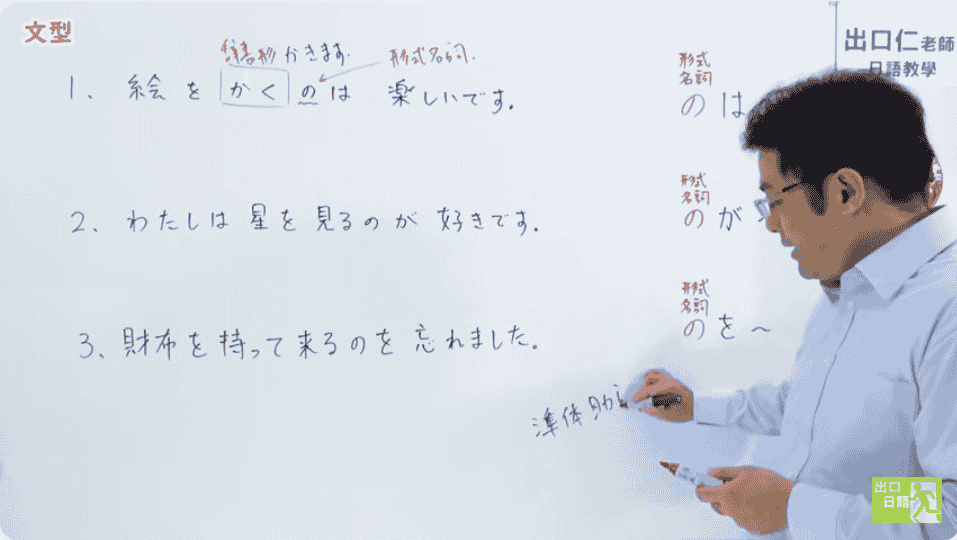 文型
出口仁老師
日語教學
辞書形 かきます. 形式名詞.
1、絵を かく のは 楽しいです.
形式名詞
のは
2、わたしは星を見るのが 好きです.
形式名詞
のが
3、財布を持って来るのを 忘れました。
形式名詞
のを~
準体助
出口日語